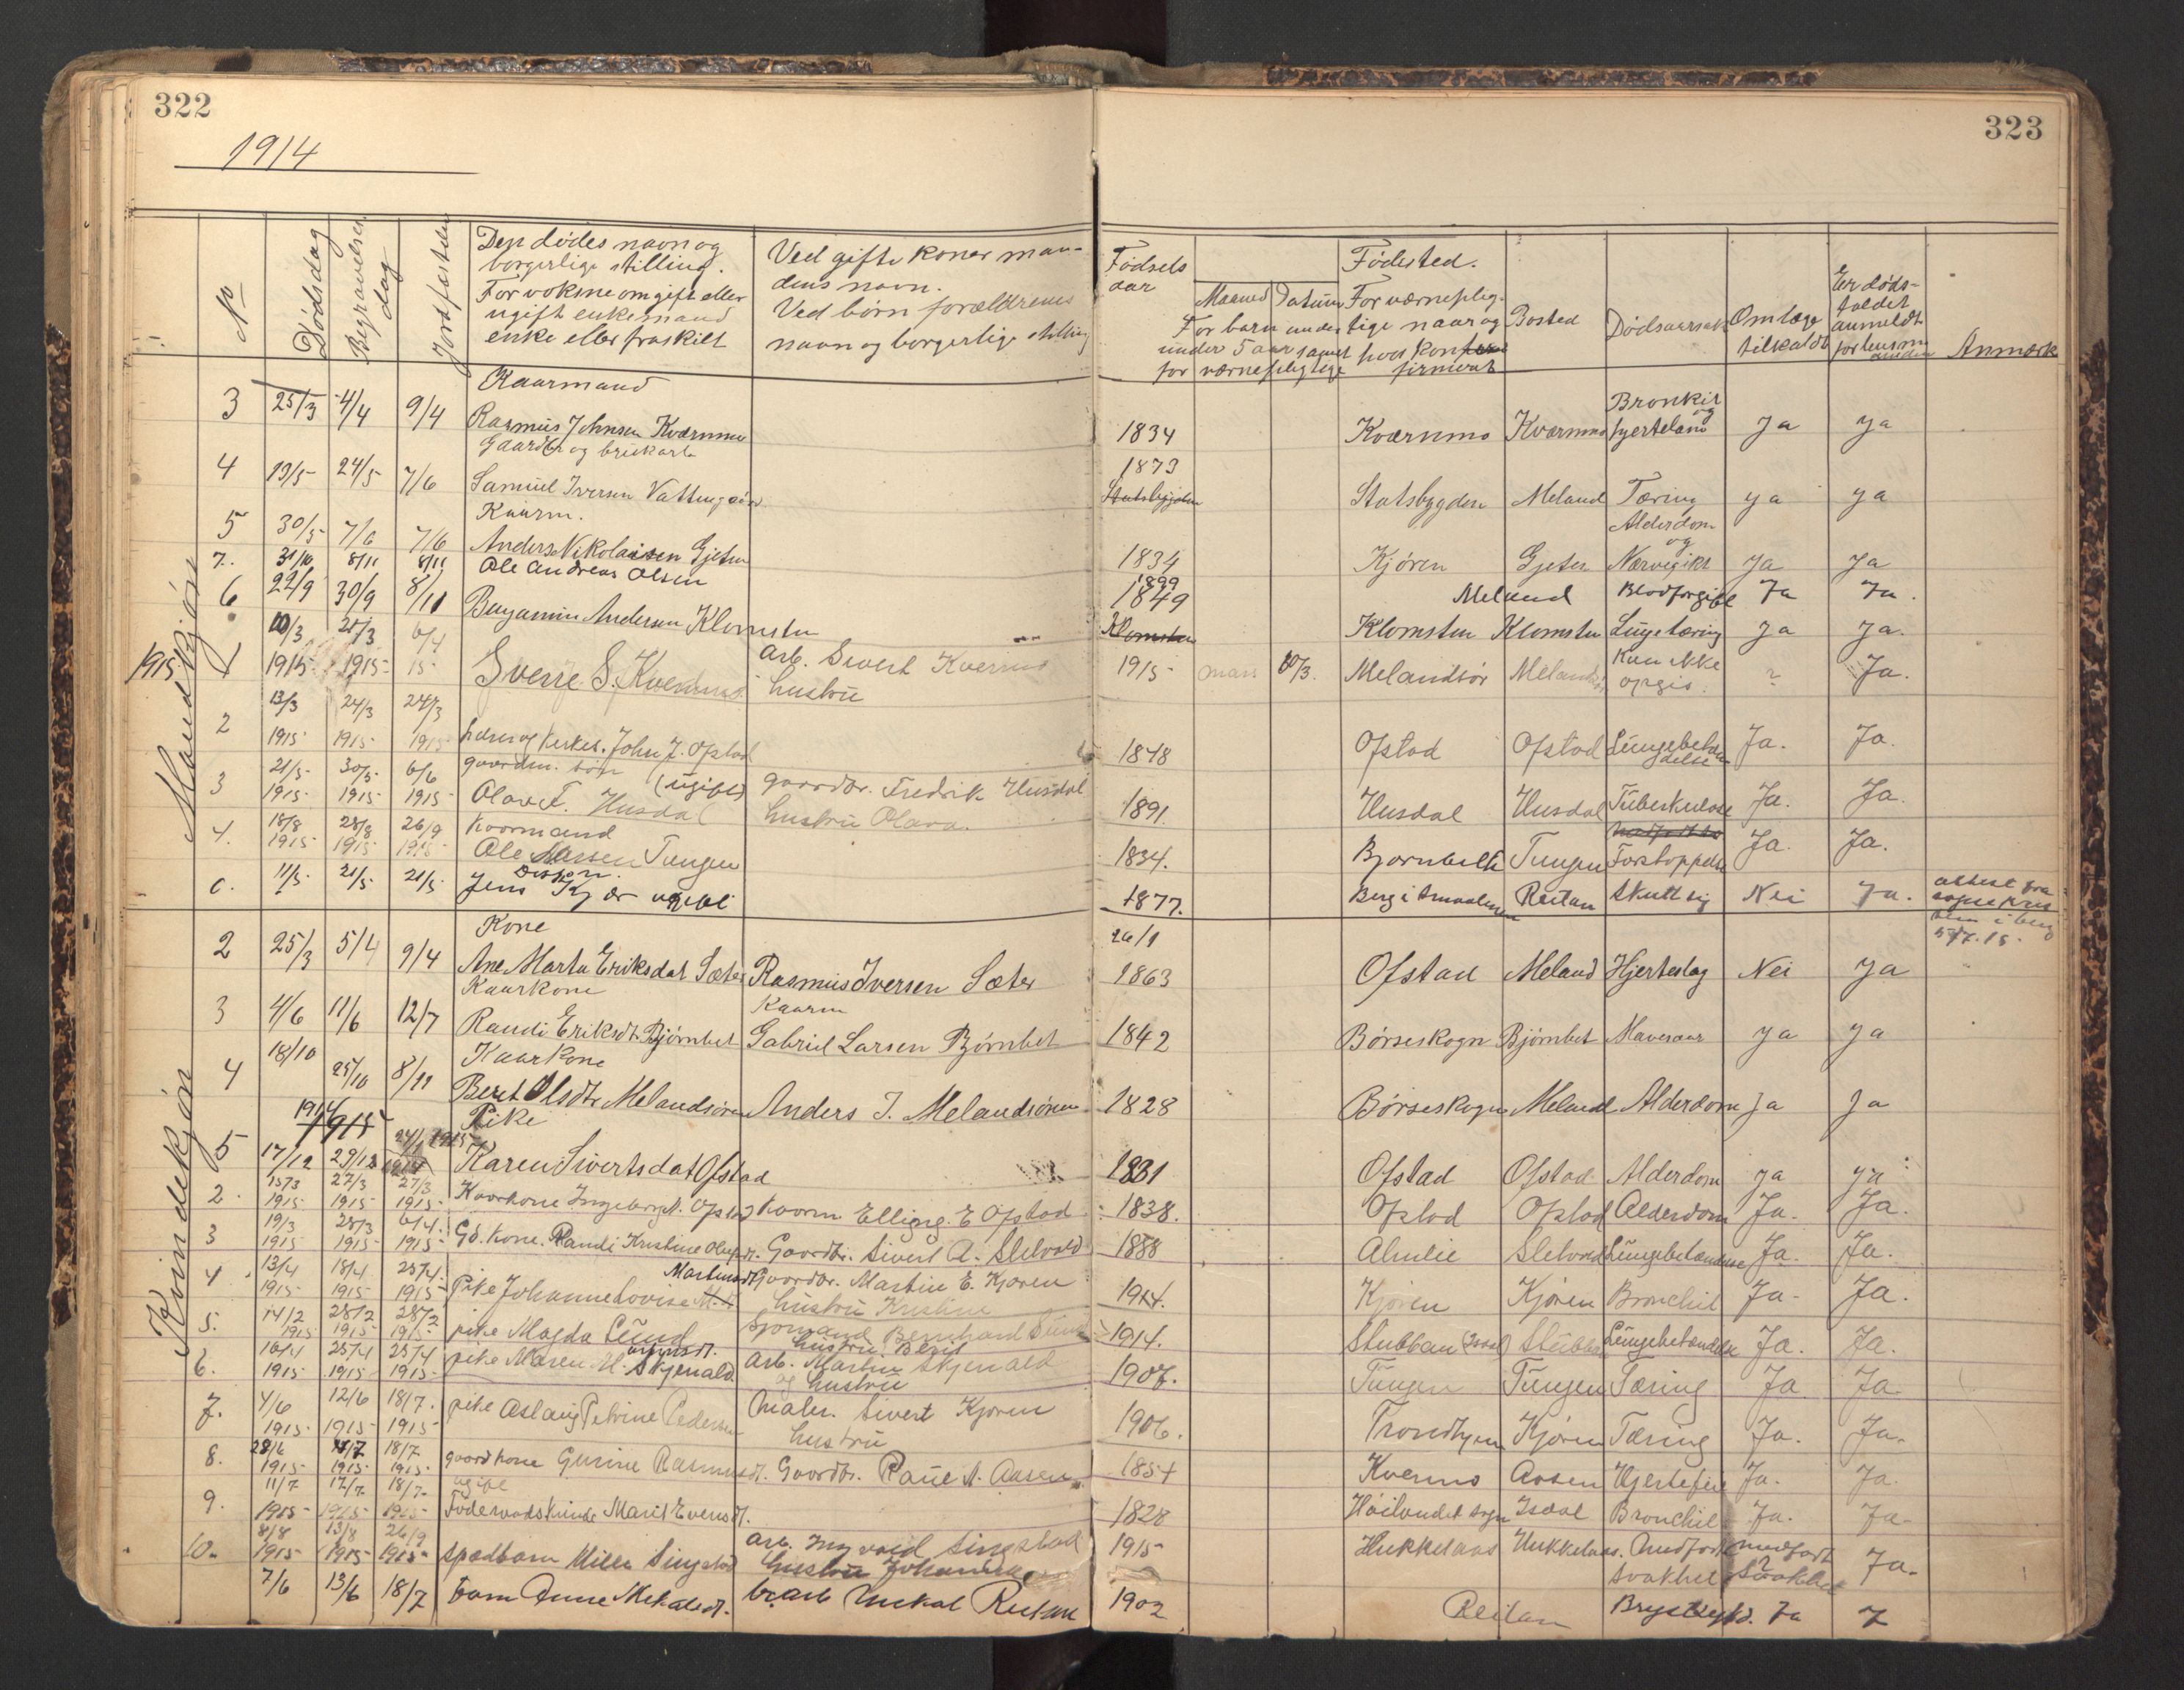 322
323
1914
No
Dødsdag
Begravelses dag
Jordfæstelse
Den dødes navn og
borgerlige stilling.
For voksne om gift eller
ugift enkemand
enke eller fraskilt
Ved gifte koner man-
dens navn.
Ved børn forældrenes
navn og borgerlige stilling
Fødsels
aar
Maaned Datum
For barn
under 5 aar samt
for værnepligtige
Fødested.
For værneplig-
tige naar og
hvor kon
firmerat
Bosted
Dødsaarsak
Om læge
tilkaldt
Er døds-
faldet
anmeldt
for lensm
anden
Anmærk
Mandkjøn
Kaarmand
3 25/3 4/4 9/4 Rasmus Johnsen Kværnmo 1834 Kværnmo Kværnmo Bronkit og hjertelam Ja Ja
Gaardbr og brukarb
4 13/5 24/5 7/6 Samuel Iversen 1873 Statsbygden Meland Tæring ya ya
Kaarm.
5 30/5 7/6 7/6 Anders Nikolaisen Gjeten 1834 Kjøren Gjeten Alderdom og Ja Ja
7. 31/10 8/11 8/11 Ole Andreas Olsen 1899 Meland Blodforgift Ja Ja.
6 22/9 30/9 8/11 Benjamin Andersen Klomsten 1849 Klomsten Klomsten Lungetæring Ja Ja.
1915
1 10/3 21/3 6/4
1915 1915 15 Sverre S. Kvernmo Arb. Sivert Kvernmo hustru 1915 mars 10/3. Melandsør Meland Kan ikke opgis. ? Ja.
13/3 24/3 24/3
2 1915 1915 1915 John J. Ofstad 1848 Ofstad Ofstad Lungebetændelse Ja. Ja.
21/5 30/5 6/6 gaardm. søn (ugift)
3 1915 1915 1915 Olav F. Husdal gaardbr. Fredrik Husdal hustru Olava 1891. Husdal Husdal Tuberkulose Ja. Ja.
18/8 28/8 26/9 Kaarmand
4. 1915 1915 1915 Ole Larsen Tungen 1834. Tungen Forstoppelse Ja. Ja.
11/5. 21/5 21/5. Jens Kjær ugift 1877. Berg i Smaalenen Reitan Skutt sig Nei Ja. attest fra
Kvindekjøn
Kone 26/1
2 25/3 5/4 9/4 Ane Marta Eriksdat Sæter Rasmus Iversen Sæter 1863 Ofstad Meland Hjerteslag Nei Ja
Kaarkone Kaarm
3 4/6 11/6 12/7 Randi Eriksdt. Bjørnbet Gabriel Larsen Bjørnbet 1842 Børseskogn Bjørnbet Mavesaar Ja Ja
Kaarkone
4 18/10 25/10 8/11 Beret Olsdtr Melandsøren Anders J. Melandsøren 1828 Børseskogn Meland Alderdom Ja Ja
1914
1915 Pike
24/1 1915
5 17/12 29/12 1914 Karen Sivertsdat Ofstad 1831 Ofstad Ofstad Alderdom Ja Ja
15/3 27/3 27/3
2. 1915 1915 1915 Kaarkone Ingeborg A. Ofstad Kaarm Elling E Ofstad 1838. Ofstad Ofstad Alderdom Ja. Ja.
19/3 28/3 6/4.
3 1915 1915 1915 Gd. Kone. Randi Kristine Gaardbr. Sivert A. Sletvold 1888 Almlie Sletvold Lungebetændelse Ja. Ja.
13/4 18/4 25/4.
4 1915 1915 1915 Pike Johanne Lovise Martinsdt Gaardbr. Martin E. Kjøren hustru Kristine 1914. Kjøren Kjøren Bronchit Ja. Ja.
14/2 28/2 28/2
5. 1915 1915 1915 pike Magda Sund Sjømand Bernhard Sund hustru Berit 1914. Stubban Stubban Lungebetændelse Ja. Ja.
16/4 25/4 25/4
6. 1915 1915 1915 pike Maren M. Skjenald Arb. Martin Skjenald og hustru 1907. Tungen Tungen Tæring Ja Ja.
4/6 12/6 18/7.
7. 1915 1915 1915 pike Aslaug Petrine Pedersen Maler. Sivert Kjøren hustru 1906. Trondhjem Kjøren Tæring Ja. Ja.
28/6 11/7 18/7
8. 1915 1915 1915 gaardkone Gurine Rasmusdt. Gaardbr. Paul A. Aasen 1854 Kvernmo Aasen Hjertefeil Ja. Ja.
11/7 17/7 18/7 ugift
9. 1915 1915 1915 Foderaadskvinde Marit Evensdt. 1828 Høilandet sogn Isdal Bronchit Ja. Ja.
8/8 13/8 26/9
10. 1915 1915 1915 spædbarn Milla Singstad Arb. Ingvald Singstad hustru Johanna 1915 Hukkelaas Hukkelaas. Medfødt svakhet medfødt ? svakhet Ja.
7/6 13/6 18/7 barn Anne Mikalsdt. br.arb Mikal Reitan 1902 Reitan Brystsyk. Ja J